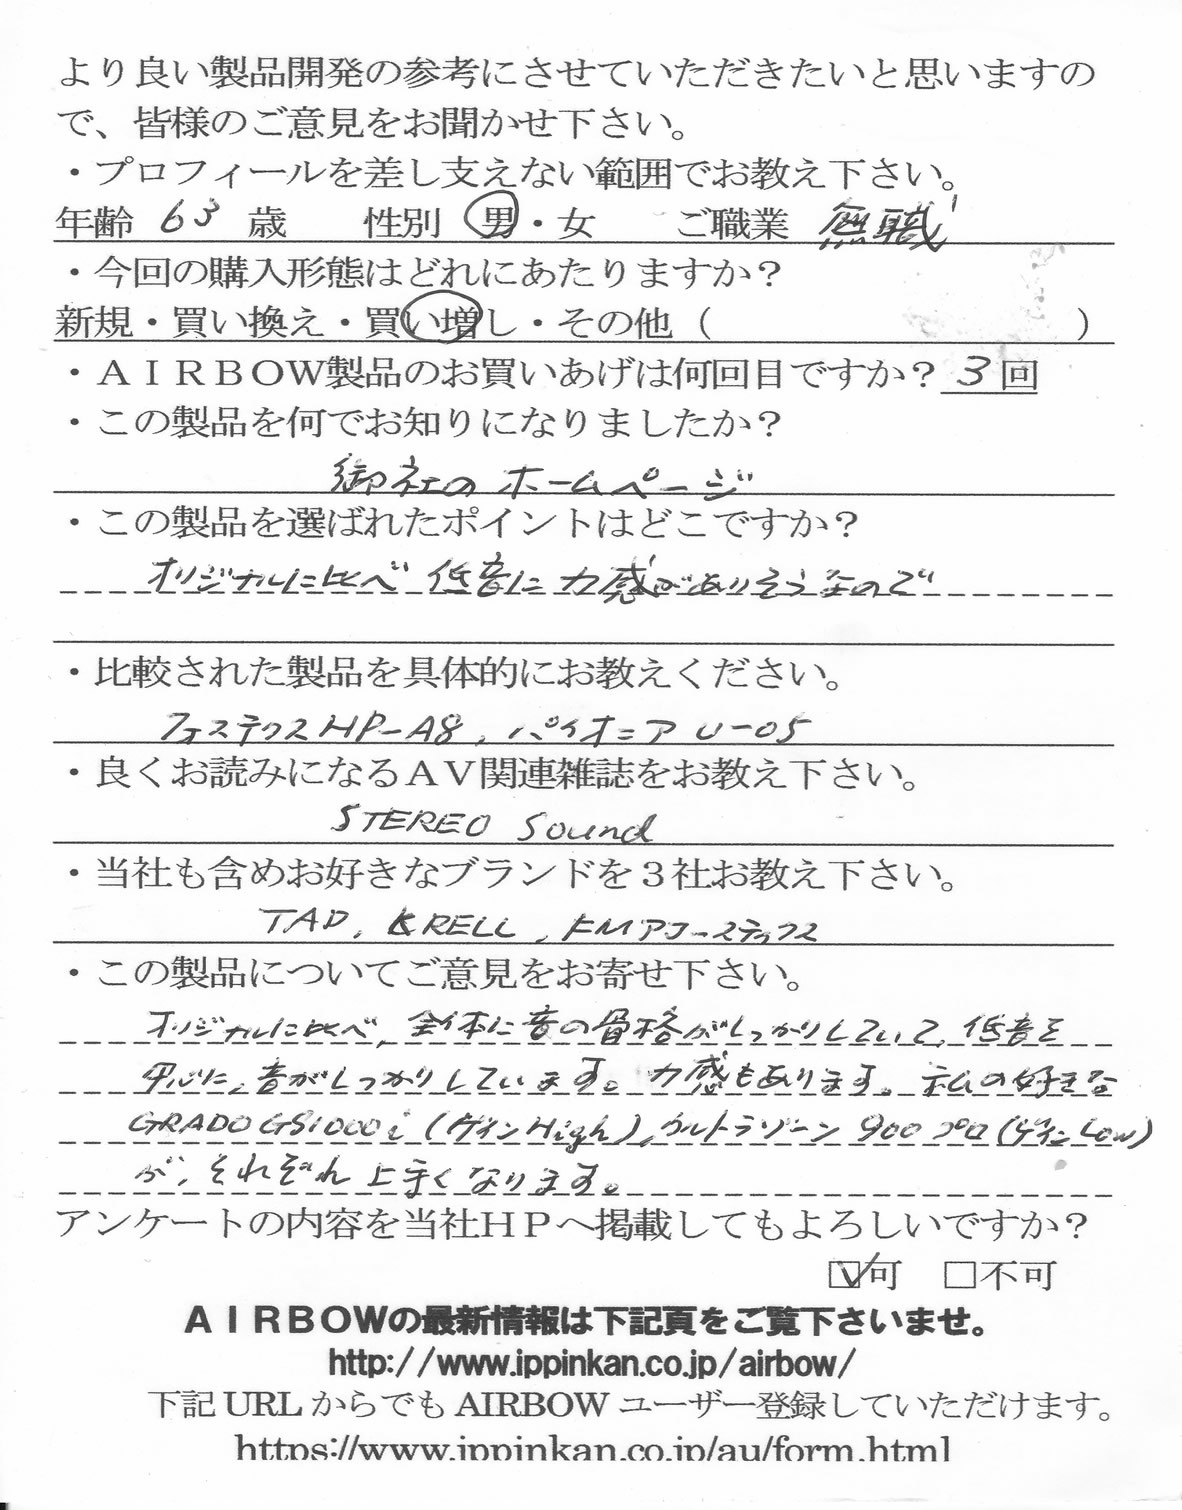 より良い製品開発の参考にさせていただきたいと思いますの
で、皆様のご意見をお聞かせ下さい。
・プロフィールを差し支えない範囲でお教え下さい。
年齢 63 歳 性別 男・女 ご職業 無職
・今回の購入形態はどれにあたりますか？
新規・買い換え・買い増し・その他（ ）
・ＡＩＲＢＯＷ製品のお買いあげは何回目ですか？ 3 回
・この製品を何でお知りになりましたか？
御社のホームページ
・この製品を選ばれたポイントはどこですか？
オリジナルに比べ 低音に力感がありそうなので
・比較された製品を具体的にお教えください。
フォステクスHP-A8, パイオニア U-05
・良くお読みになるＡＶ関連雑誌をお教え下さい。
STEREO Sound
・当社も含めお好きなブランドを３社お教え下さい。
TAD, KRELL, FMアコースティックス
・この製品についてご意見をお寄せ下さい。
オリジナルに比べ, 全体に音の骨格がしっかりしていて, 低音を
中心に, 音がしっかりしています。力感もあります。私の好きな
GRADO GS1000i (ゲインHigh), ウルトラゾーン 900プロ(ゲインLow)
が, それぞれ上手くなります。
アンケートの内容を当社ＨＰへ掲載してもよろしいですか？
☑可 □不可
ＡＩＲＢＯＷの最新情報は下記頁をご覧下さいませ。
http://www.ippinkan.co.jp/airbow/
下記 URL からでも AIRBOW ユーザー登録していただけます。
https://www.ippinkan.co.jp/au/form.html